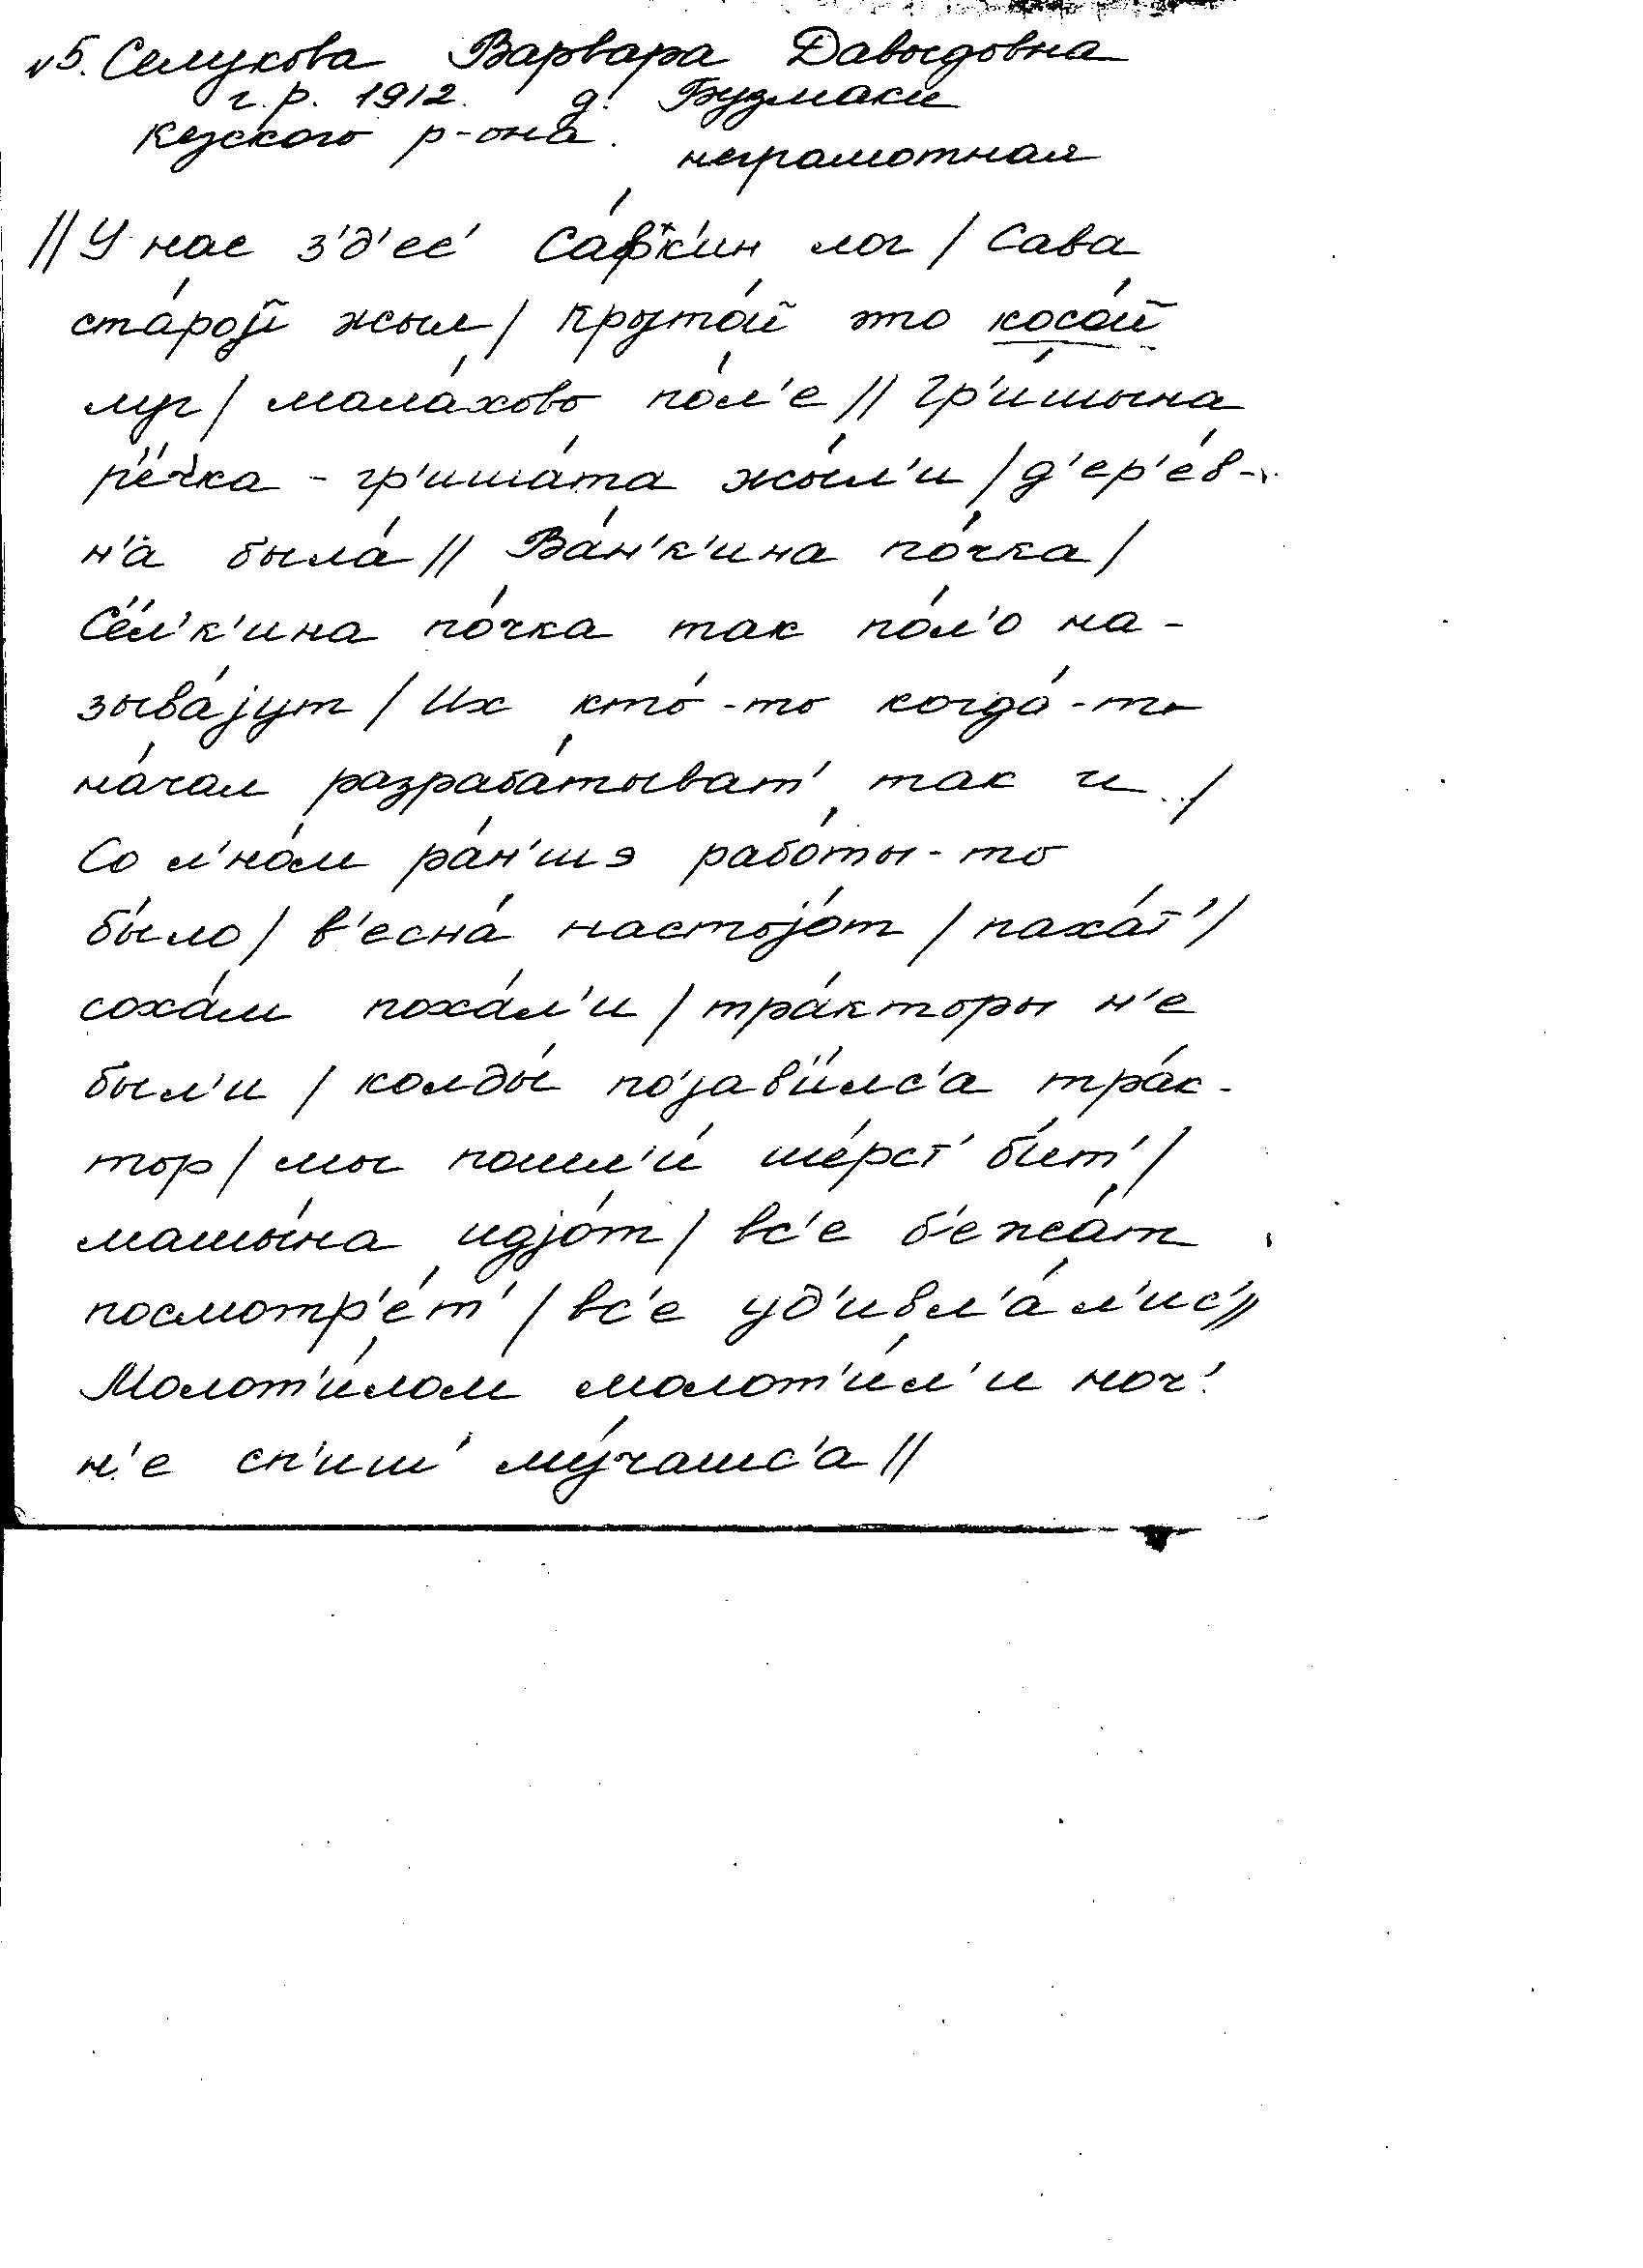 №5. Селукова Варвара Давыдовна
г.р. 1912. д. Бузмаки
Кезского р-она.
неграмотная
// У нас з'д'ес' Са́фк'ин лог / Сава
ста́рой жыл / Крута́й это коса́й
луг / мала́хово по́л'е // Гр'и́шына
р'е́чка - гр'иша́та жы́л'и / д'ер'е́в-
н'а была́ // Ва́н'к'ина по́чка /
Сёл'к'ина по́чка так по́л'о на-
зыва́jут / Их кто́-то когда́-то
на́чал разраба́тыват' так и../
Со л'но́м ра́н'шэ рабо́ты-то
бы́ло / в'есна́ настоjо́т / паха́т' /
соха́м поха́л'и / тра́кторы н'е
был'и / колды́ поjав'и́лс'а тра́к-
тор / мы пошл'и́ ше́рст' б'ит' /
машы́на идjо́т / вс'е б'ежа́т
посмотр'е́т' / вс'е уд'ивл'а́л'ис' //
Молот'и́лом молот'и́л'и ноч'
н'е сп'иш' му́чашс'а //